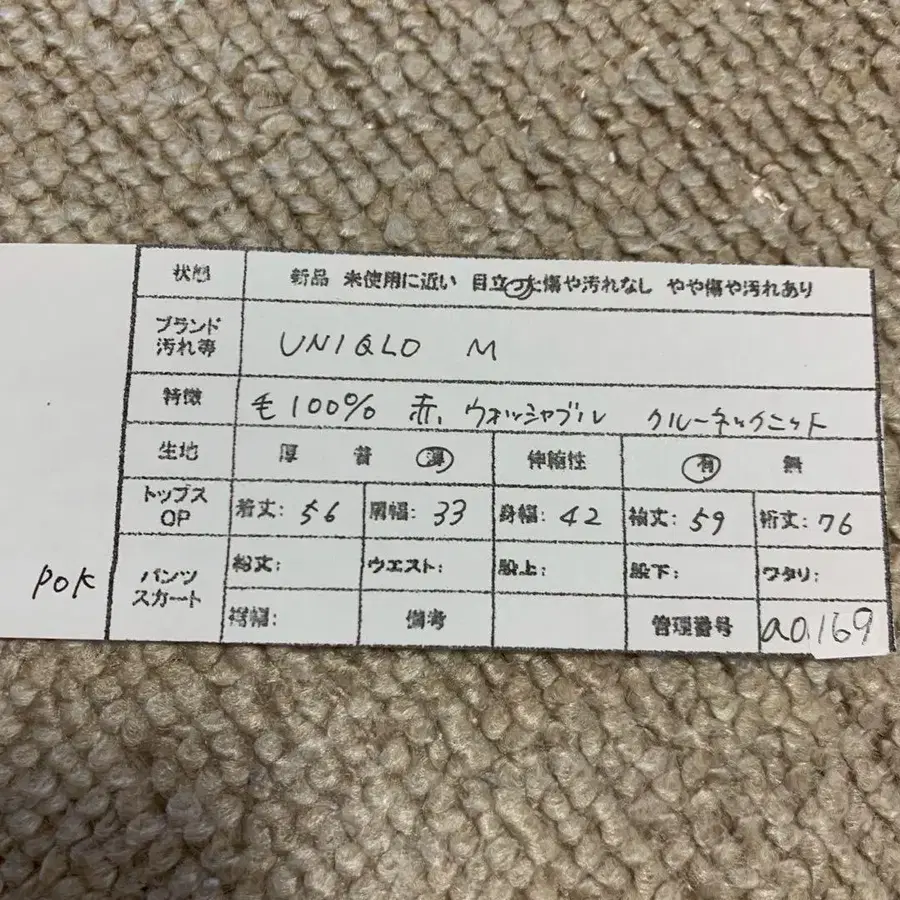 状態 新品 未使用に近い 目立った傷や汚れなし やや傷や汚れあり
ブランド
汚れ等
UNIQLO M
特徴 毛100% 赤、ウォッシャブル クルーネックニット
生地 厚 普 薄 伸縮性 有 無
トップス
OP
着丈: 56 肩幅: 33 身幅: 42 袖丈: 59 裄丈: 76
パンツ
スカート
総丈: ウエスト: 股上: 股下: ワタリ:
裾幅: 備考 管理番号 a0169
POK